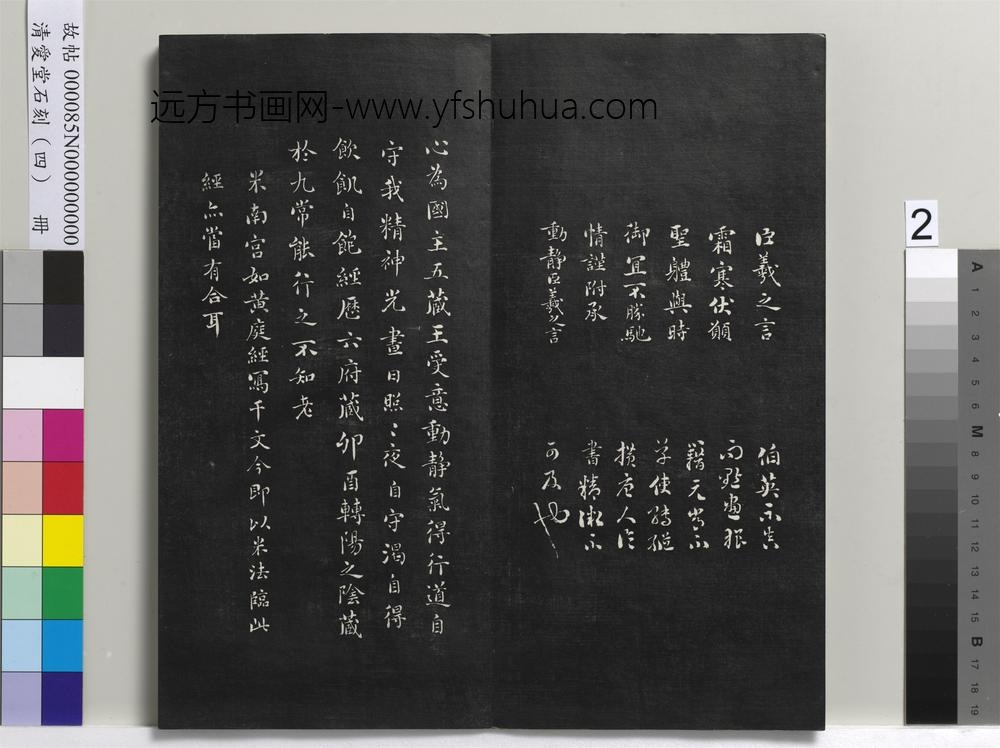 故帖 000085N000000000
清愛堂石刻（四） 冊
远方书画网-www.yfshuhua.com
臣羲之言
霜寒伏願
聖體與時
御宜不勝馳
情謹附承
動靜臣羲之言
伯英不真
而點畫狼
籍元常不
草使轉縱
橫唐人作
書精微不
可及也
心為國主五藏王受意動靜氣得行道自
守我精神光晝日照〻夜自守渴自得
飲飢自飽經歷六府藏卯酉轉陽之陰藏
於九常能行之不知老
米南宮如黃庭經寫千文今即以米法臨此
經亦當有合耳
2
A 1 2 3 4 5 6 M 8 9 10 11 12 13 14 15 B 17 18 19